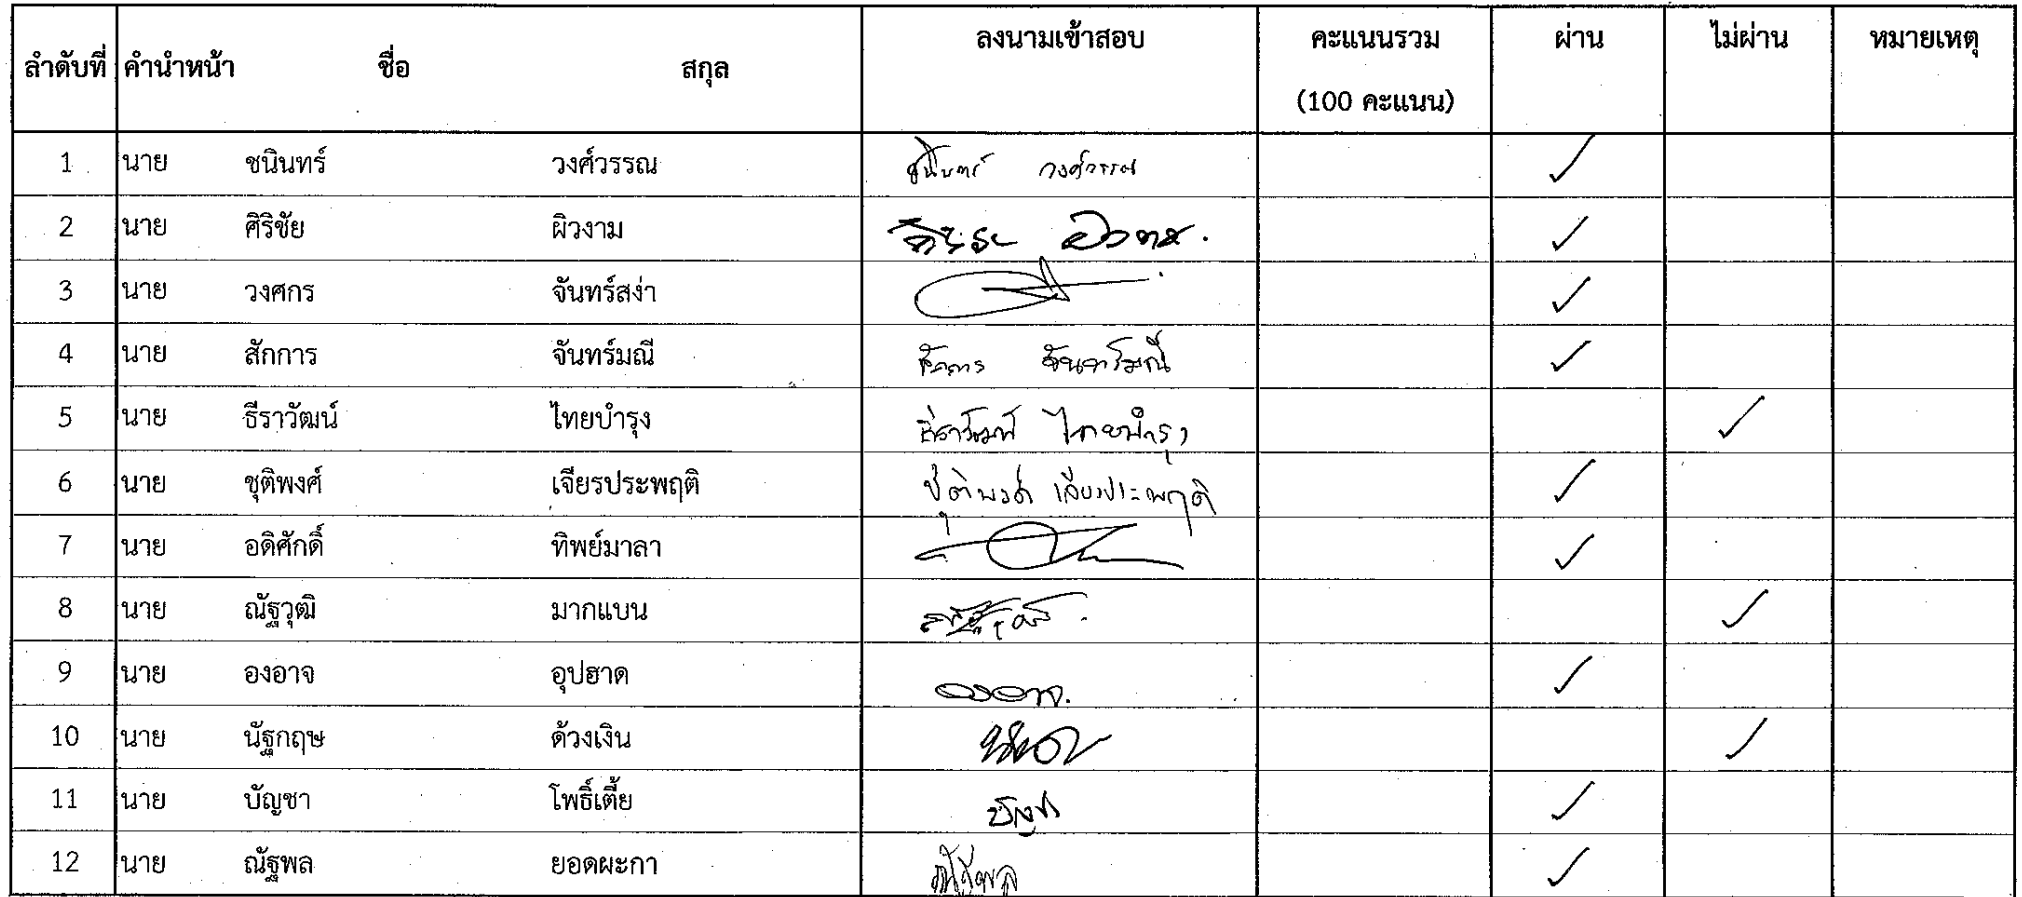 ลำดับที่ คำนำหน้า ชื่อ สกุล ลงนามเข้าสอบ คะแนนรวม (100 คะแนน) ผ่าน ไม่ผ่าน หมายเหตุ
1 นาย ชนินทร์ วงศ์วรรณ ชนินทร์ วงศ์วรรณ
2 นาย ศิริชัย ผิวงาม
3 นาย วงศกร จันทร์สง่า
4 นาย สักการ จันทร์มณี สักการ จันทร์มณี
5 นาย ธีราวัฒน์ ไทยบำรุง ธีราวัฒน์ ไทยบำรุง
6 นาย ชุติพงศ์ เจียรประพฤติ ชุติพงศ์ เจียรประพฤติ
7 นาย อดิศักดิ์ ทิพย์มาลา
8 นาย ณัฐวุฒิ มากแบน
9 นาย องอาจ อุปฮาด องอาจ.
10 นาย นัฐกฤษ ด้วงเงิน
11 นาย บัญชา โพธิ์เตี้ย บัญชา
12 นาย ณัฐพล ยอดผะกา ณัฐพล